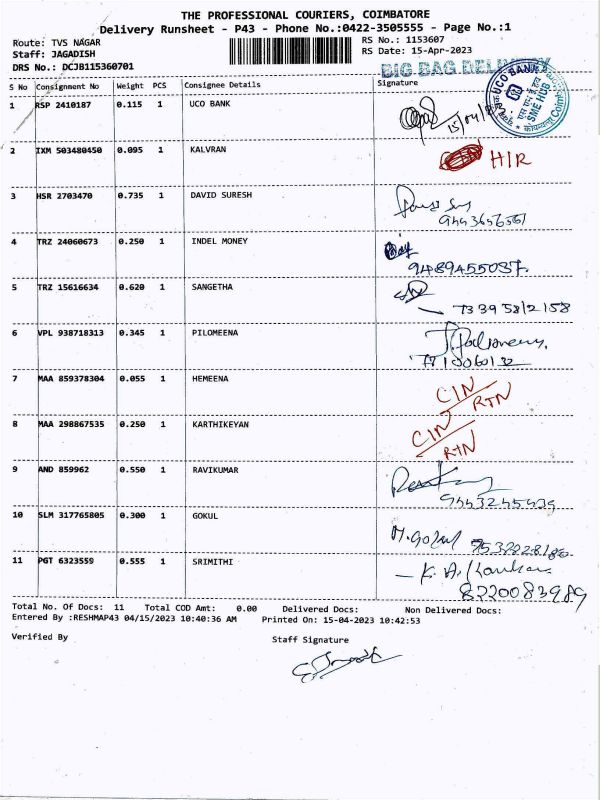 THE PROFESSIONAL COURIERS, COIMBATORE
Delivery Runsheet - P43 - Phone No.:0422-3505555 - Page No.:1
Route: TVS NAGAR RS No.: 1153607
Staff: JAGADISH RS Date: 15-Apr-2023
DRS No.: DCJB115360701
BIG BAG DELIVERY
UCO BANK
SME HUB
S No Consignment No Weight PCS Consignee Details Signature
1 RSP 2410187 0.115 1 UCO BANK
2 IXM 503480450 0.095 1 KALVRAN H/R
3 HSR 2703470 0.735 1 DAVID SURESH
4 TRZ 24060673 0.250 1 INDEL MONEY
9489455037.
5 TRZ 15616634 0.620 1 SANGETHA
6 VPL 938718313 0.345 1 PILOMEENA
7 MAA 859378304 0.055 1 HEMEENA CIN
RTN
8 MAA 298867535 0.250 1 KARTHIKEYAN CIN
RTN
9 AND 859962 0.550 1 RAVIKUMAR
10 SLM 317765805 0.300 1 GOKUL
11 PGT 6323559 0.555 1 SRIMITHI
8220083989
Total No. Of Docs: 11 Total COD Amt: 0.00 Delivered Docs: Non Delivered Docs:
Entered By :RESHMAP43 04/15/2023 10:40:36 AM Printed On: 15-04-2023 10:42:53
Verified By Staff Signature